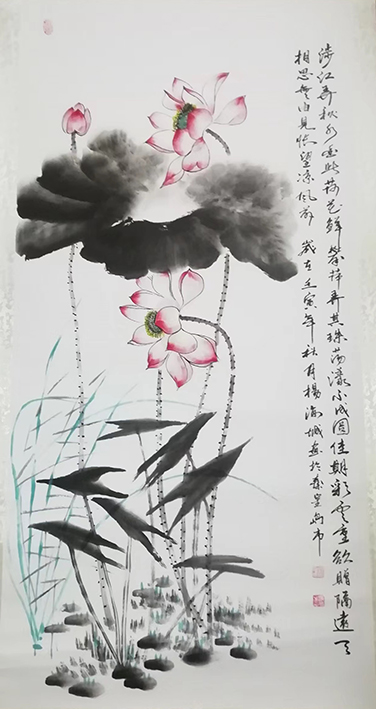 涉江弄秋水爱此荷花鲜攀荷弄其珠荡漾不成圆佳期彩云重欲赠隔远天
相思无由见怅望凉风前 岁在壬寅年秋月杨海城画于秦皇岛市